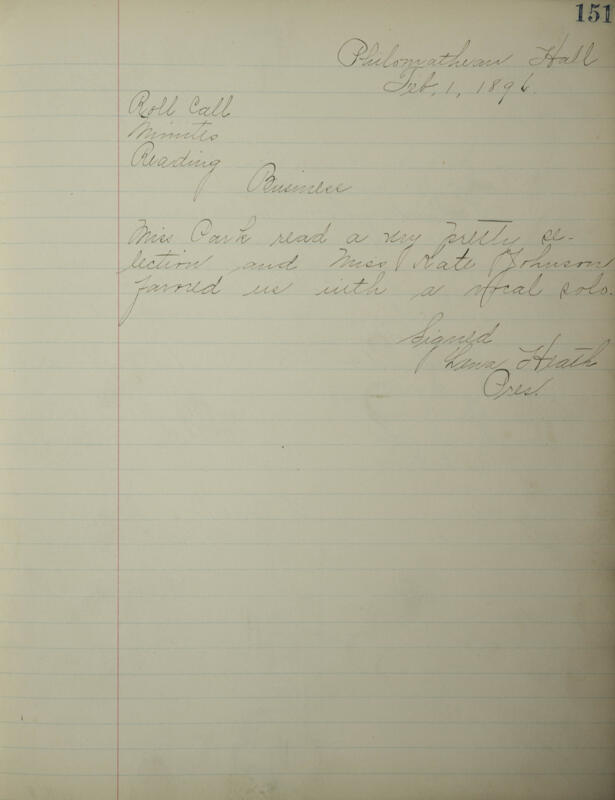 151
Philomathean Hall
Feb. 1, 1896.
Roll Call
Minutes
Reading
Business
Miss Park read a very pretty se-
lection and Miss Kate Johnson
favored us with a vocal solo.
Signed
Heath
Pres.